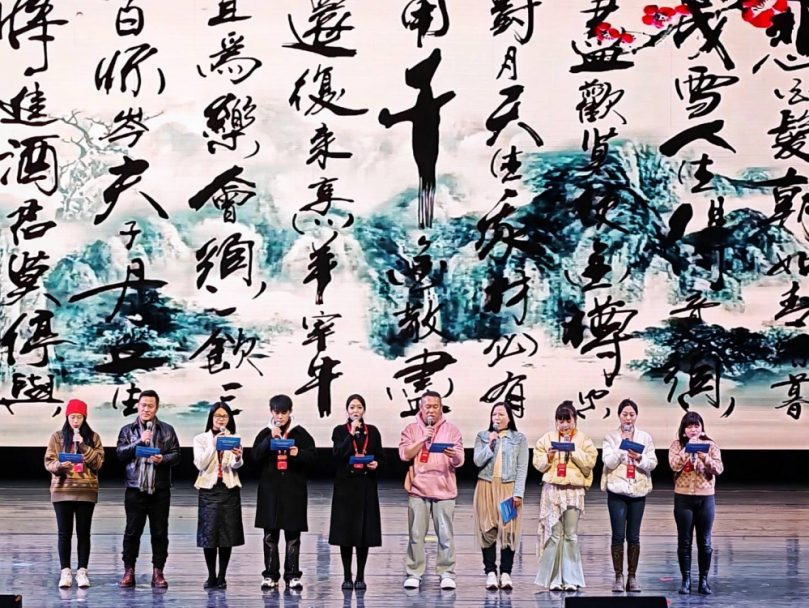 悲白髮朝如青絲暮
成雪人生得意須
盡歡莫使金樽空
對月天生我材必有
用千金散盡
還復來烹羊宰牛
且為樂會須一飲三
百杯岑夫子丹丘生
將進酒君莫停與